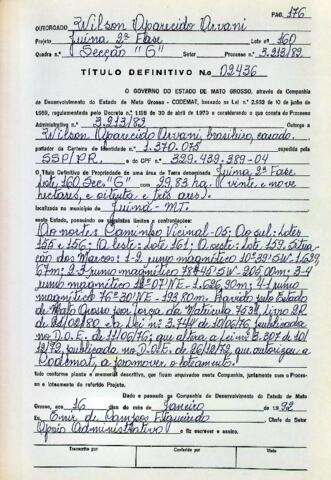 PAG. 176
OUTORGADO Wilson Aparecido Arvani
Projeto Juina 2ª Fase Lote nº 160
Quadra n.º Secção "G" Processo n.º 3.213/89
TÍTULO DEFINITIVO N.o 02436
O GOVERNO DO ESTADO DE MATO GROSSO, através da Companhia
de Desenvolvimento do Estado de Mato Grosso - CODEMAT, baseado na Lei n.º 2.933 de 10 de junho de
1969, regulamentada pelo Decreto n.º de 30 de abril de 1979 e considerando o que consta do Processo
Administrativo n.º 3.213/89
a Wilson Aparecido Arvani, brasileiro, casado.
portador da Carteira de Identidade n.º 1.370.075 expedida pela
SSP/PR. e do CPF n.º 329.439.389-04
O Título Definitivo de Propriedade de uma área de terra denominada Juina 2ª Fase
Lote 160 Sec. "G" com 29,83 ha (vinte e nove
hectares, e oitenta e três ares).
localizada no município de Juina-MT.
neste Estado, possuindo os seguintes limites e confrontações:
Ao norte: Caminho Vicinal-05; Ao sul: Lotes
155 e 156; A leste: Lote 161; A oeste: Lote 159. Situa-
ção dos Marcos: 1-2 rumo magnético 10°39'SW 1.639,
67m; 2-3 rumo magnético 78°46'SW-205,00m; 3-4
rumo magnético 11°07'NE-1.626,90m; 4-1 rumo
magnético 76°30'NE-193,80m. Havido pelo Estado
de Mato Grosso por força da Matrícula 7631, Livro 2R
de /02/80 e a Lei nº 3.744 de 10/06/76, publicada
no D.O.E. de 17/06/76; que altera a Lei nº 3.307 de 10/
12/72, publicado no D.O.E. de 26/12/72, que autorizou a
Codemat, a promover o loteamento.
tudo conforme planta e memorial descritivo, que ficam arquivados nesta Companhia, juntamente com o Proces-
so e loteamento do referido Projeto.
Dado e passado na Companhia de Desenvolvimento do Estado de Mato
Grosso, aos 16 dias do mês de Janeiro de 1992
Eu Enir de Campos Figueiredo Chefe do Setor
Apoio Administrativo o fiz escrever e assino.
Transcrito por Conferido por Visto